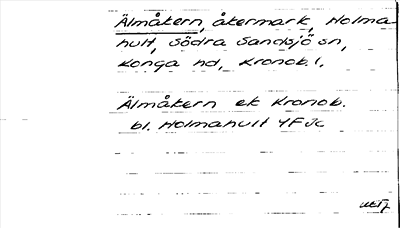 Älmåkern, åkermark, Holma-
hult, Södra Sandsjö sn,
Konga hd, Kronob. l.
Älmåkern ek Kronob.
bl. Holmahult 4F Jc